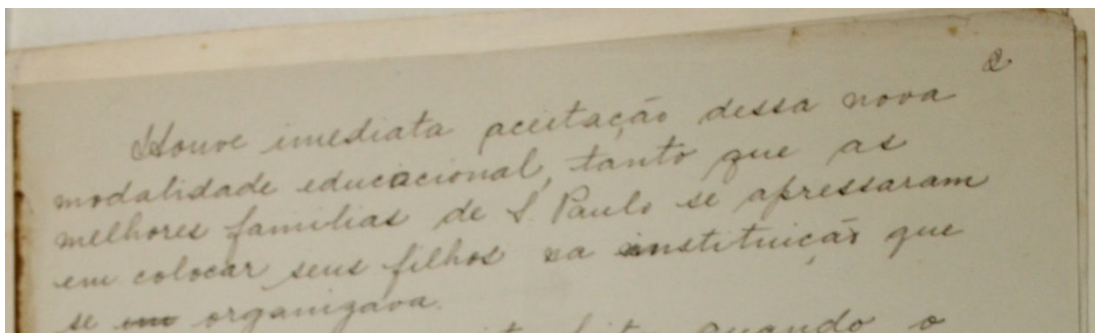 2
Houve imediata aceitação dessa nova
modalidade educacional, tanto que as
melhores familias de S. Paulo se apressaram
em colocar seus filhos na instituição que
se organizava.
quando o